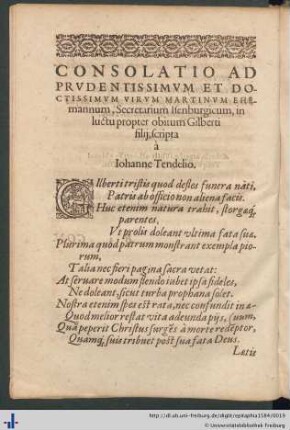 CONSOLATIO AD
PRVDENTISSIMVM ET DO-
CTISSIMVM VIRVM MARTINVM EHE-
mannum, Secretarium Isenburgicum, in
luctu propter obitum Gilberti
filij, scripta
à
Iohanne Tendelio.
GIlberti tristis quod defles funera nati,
Patris ab officio non aliena facis.
Huc etenim natura trahit, storgaq́,
parentes,
Vt prolis doleant vltima fata suæ.
Plurima quod patrum monstrant exempla pio-
rum,
Talia nec fieri pagina sacra vetat:
At seruare modum flendo iubet ipsa fideles,
Ne doleant, sicut turba prophana solet.
Nostra etenim spes est rata, nec confundit in
Quod melior restat vita adeunda pijs,
Quã peperit Christus surgẽs à morte redẽptor,
Quamq́, suis tribuet post sua fata Deus.
Lætis
http://dl.ub.uni-freiburg.de/diglit/epitaphia1584/0019
© Universitätsbibliothek Freiburg